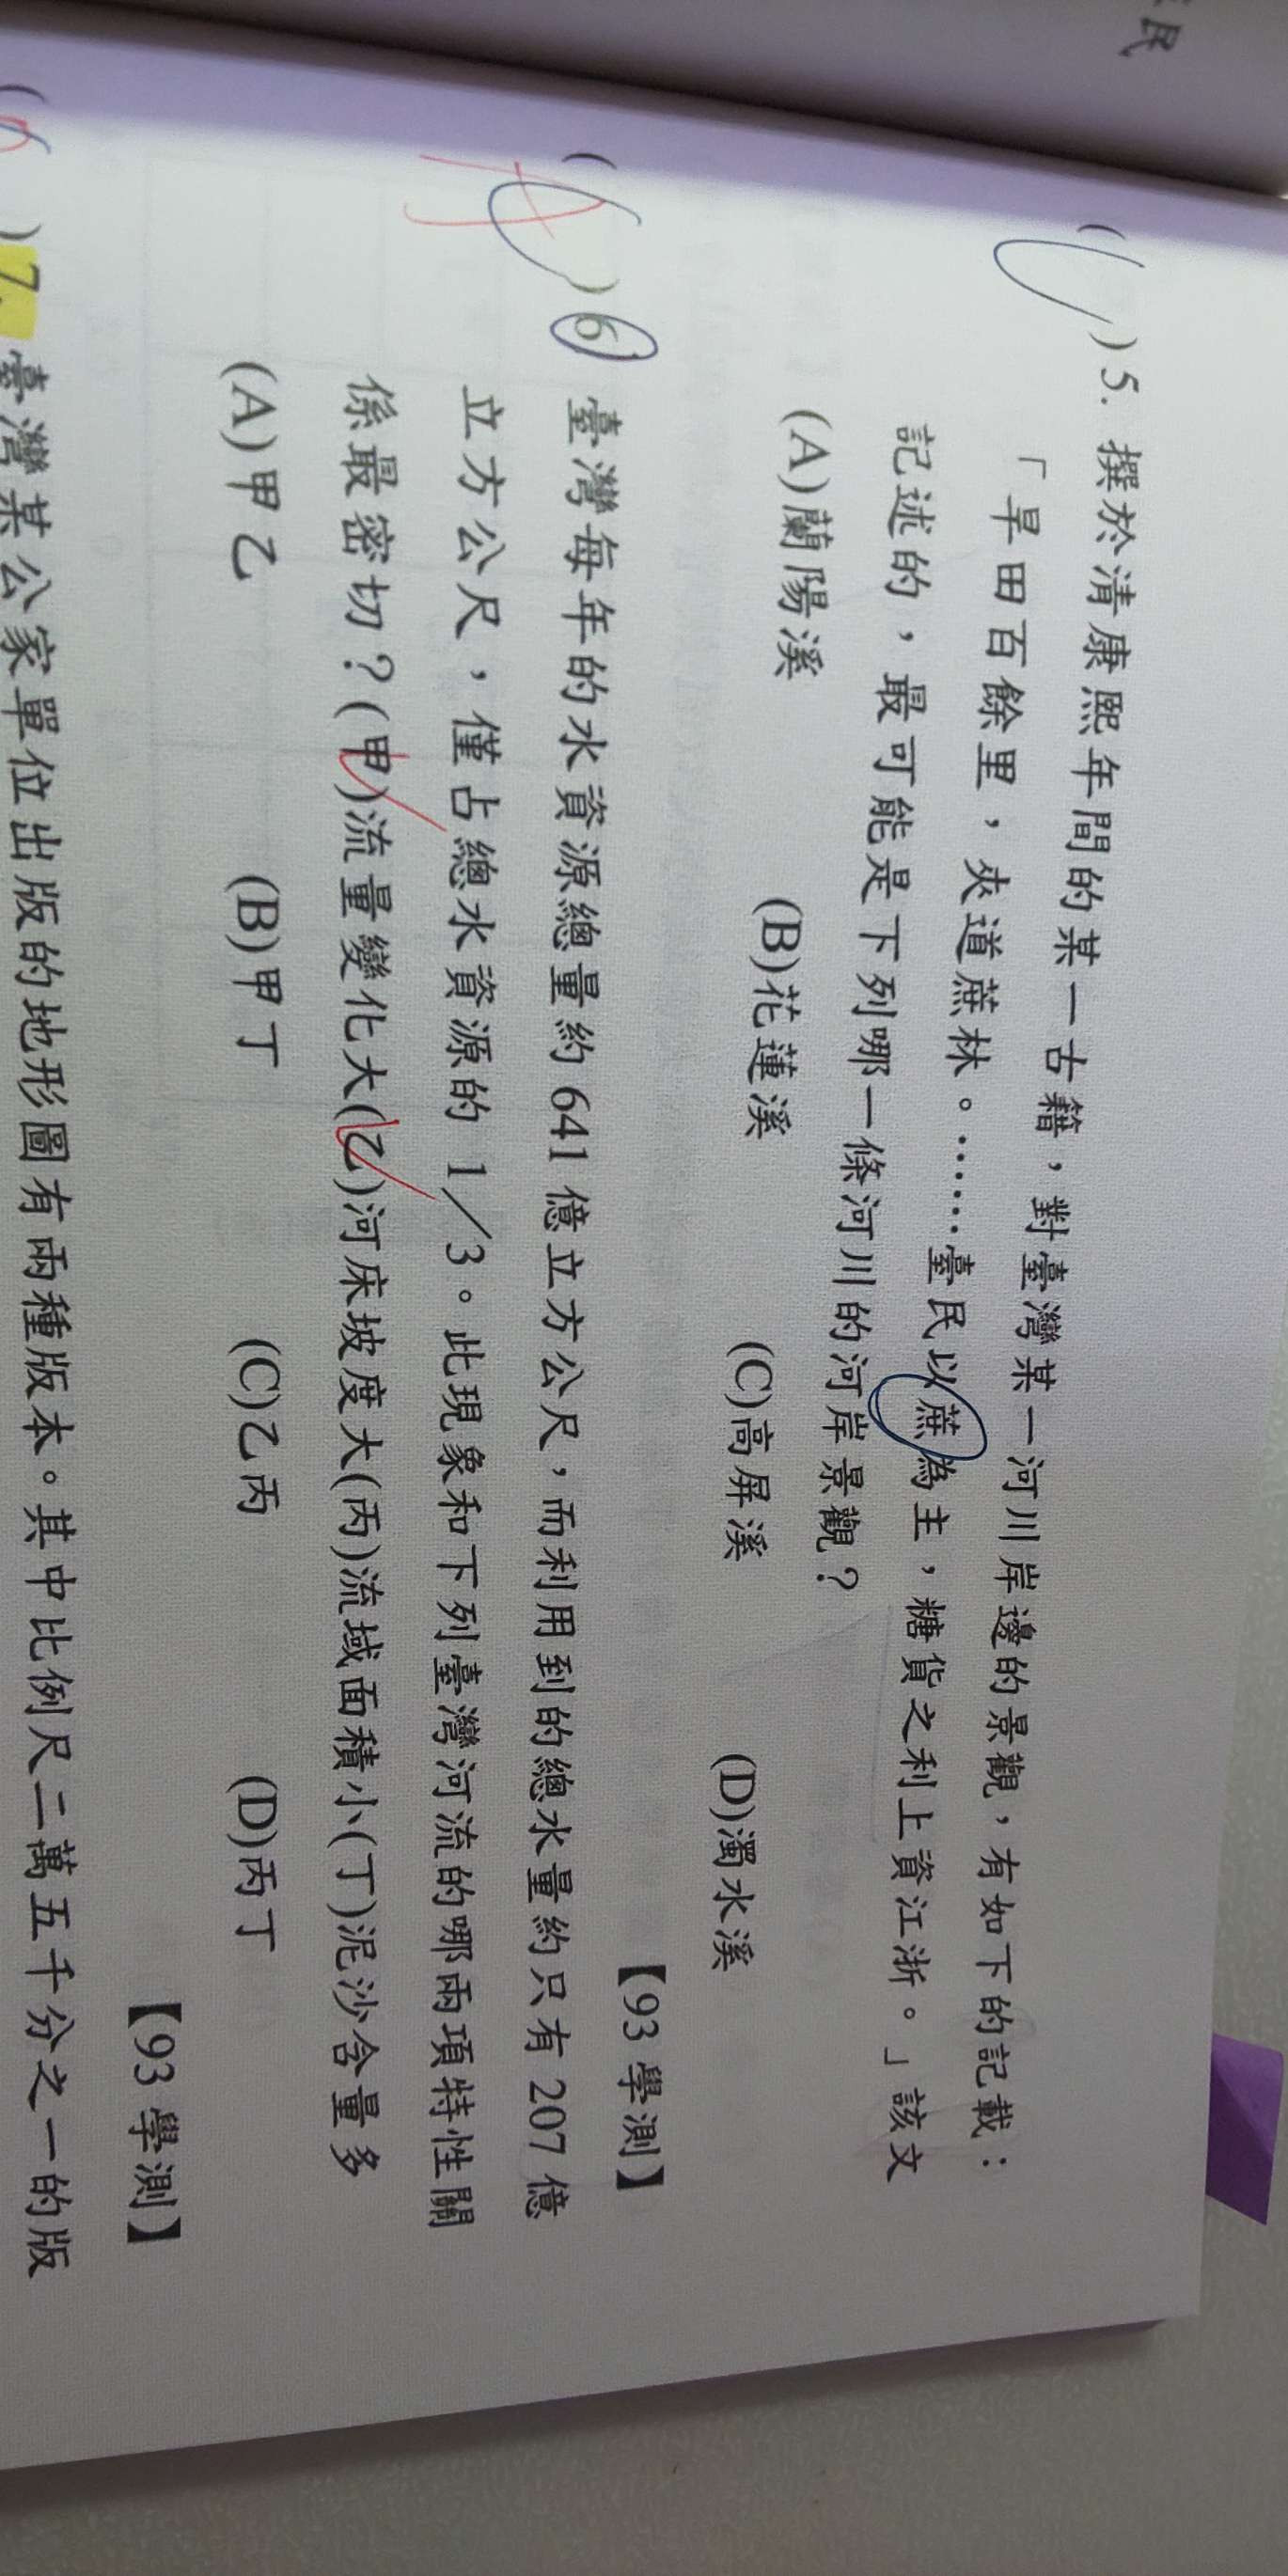 民
( )5. 撰於清康熙年間的某一古籍，對臺灣某一河川岸邊的景觀，有如下的記載：
「旱田百餘里，夾道蔗林。……臺民以蔗為主，糖貨之利上資江浙。」該文
記述的，最可能是下列哪一條河川的河岸景觀？
(A)蘭陽溪 (B)花蓮溪 (C)高屏溪 (D)濁水溪
【93 學測】
( A )6 臺灣每年的水資源總量約 641 億立方公尺，而利用到的總水量約只有 207 億
立方公尺，僅占總水資源的 1／3。此現象和下列臺灣河流的哪兩項特性關
係最密切？(甲)流量變化大(乙)河床坡度大(丙)流域面積小(丁)泥沙含量多
(A)甲乙 (B)甲丁 (C)乙丙 (D)丙丁
【93 學測】
( )7. 臺灣某公家單位出版的地形圖有兩種版本。其中比例尺二萬五千分之一的版